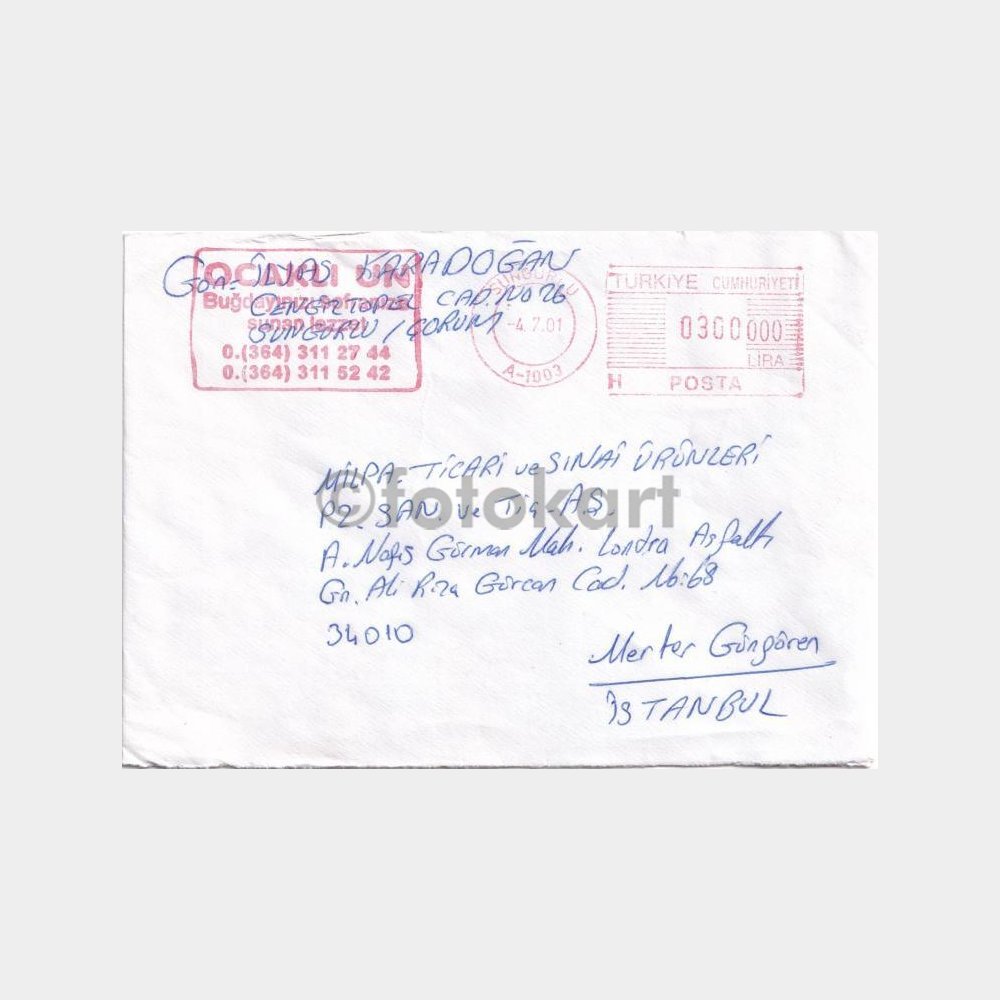 Gön: İLYAS KARADOĞAN
CENGİZ TOPEL CAD. NO 26
SUNGURLU / ÇORUM
OCAKLI UN
Buğdayınızı Sofranıza
sunan lezzet
0.(364) 311 27 44
0.(364) 311 52 42
SUNGURLU
-4.7.01
A-1003
TÜRKİYE CUMHURİYETİ
0300000
LİRA
H POSTA
MİLPA TİCARİ ve SINAİ ÜRÜNLERİ
PZ. SAN. ve Tic. AŞ.
A. Nafiş Görman Mah. Londra Asfaltı
Gn. Ali Rıza Görcan Cad. No:68
34010
Merter Güngören
İSTANBUL
©fotokart